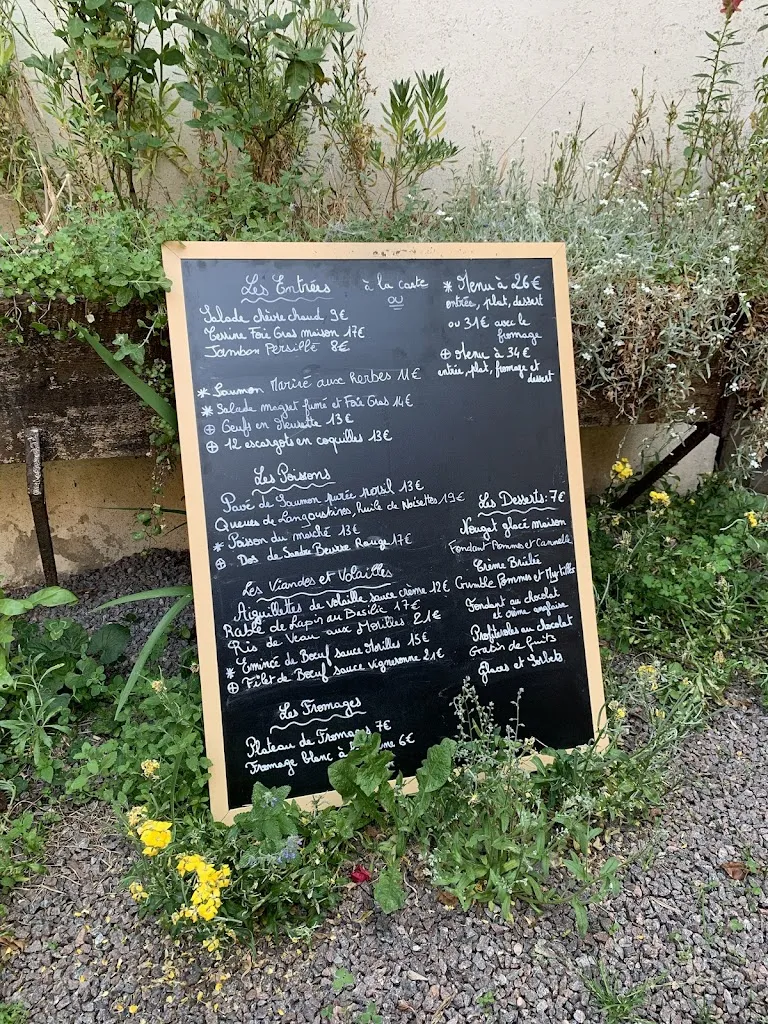 Les Entrées
à la carte
ou
Salade chèvre chaud 9€
Terrine Foie Gras maison 17€
Jambon Persillé 8€
* Saumon Mariné aux herbes 11€
* Salade magret fumé et Foie Gras 14€
⊕ Oeufs en Meurette 13€
⊕ 12 escargots en coquilles 13€
* Menu à 26€
entrée, plat, dessert
ou 31€ avec le
fromage
⊕ Menu à 34€
entrée, plat, fromage et
dessert
Les Poissons
Pavé de Saumon purée persil 13€
Queues de Langoustines, huile de Noisettes 19€
* Poisson du marché 13€
⊕ Dos de Sandre Beurre Rouge 17€
Les Viandes et Volailles
Aiguillettes de volaille sauce crème 12€
Rable de Lapin au Basilic 17€
Ris de Veau aux Morilles 21€
* Emincé de Boeuf sauce Morilles 15€
⊕ Filet de Boeuf sauce vigneronne 21€
Les Fromages
Plateau de Fromages 7€
Fromage blanc à la 6€
Les Desserts: 7€
Nougat glacé maison
Fondant Pommes et Cannelle
Crème Brûlée
Crumble Pommes et Myrtilles
Fondant au chocolat
et crème anglaise
Profiteroles au chocolat
Gratin de fruits
Glaces et Sorbets